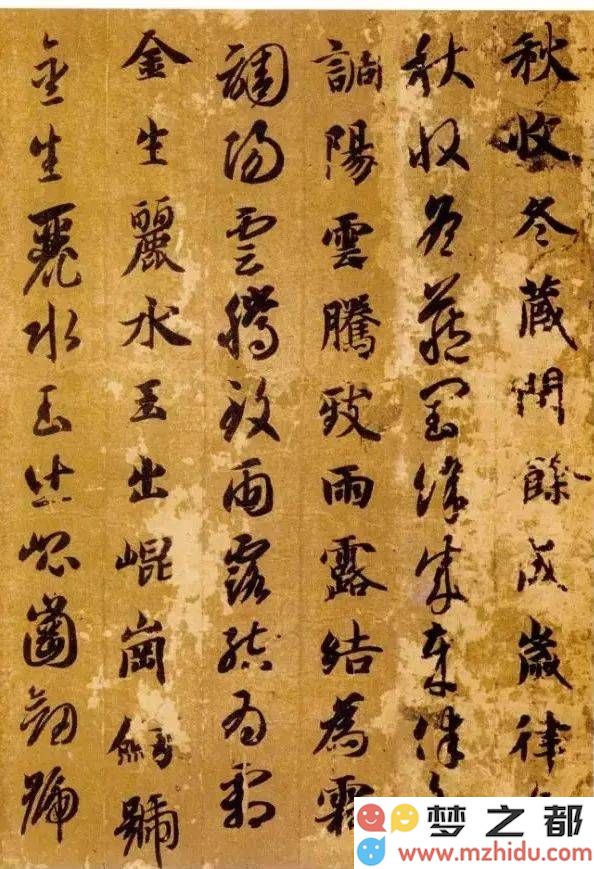 秋收冬藏閏餘成歲律
秋收冬藏閏餘成歲律
調陽雲騰致雨露結為霜
調陽雲騰致雨露結為霜
金生麗水玉出崐崗劍號
金生麗水玉出崐崗劍號
梦之都
www.mzhidu.com